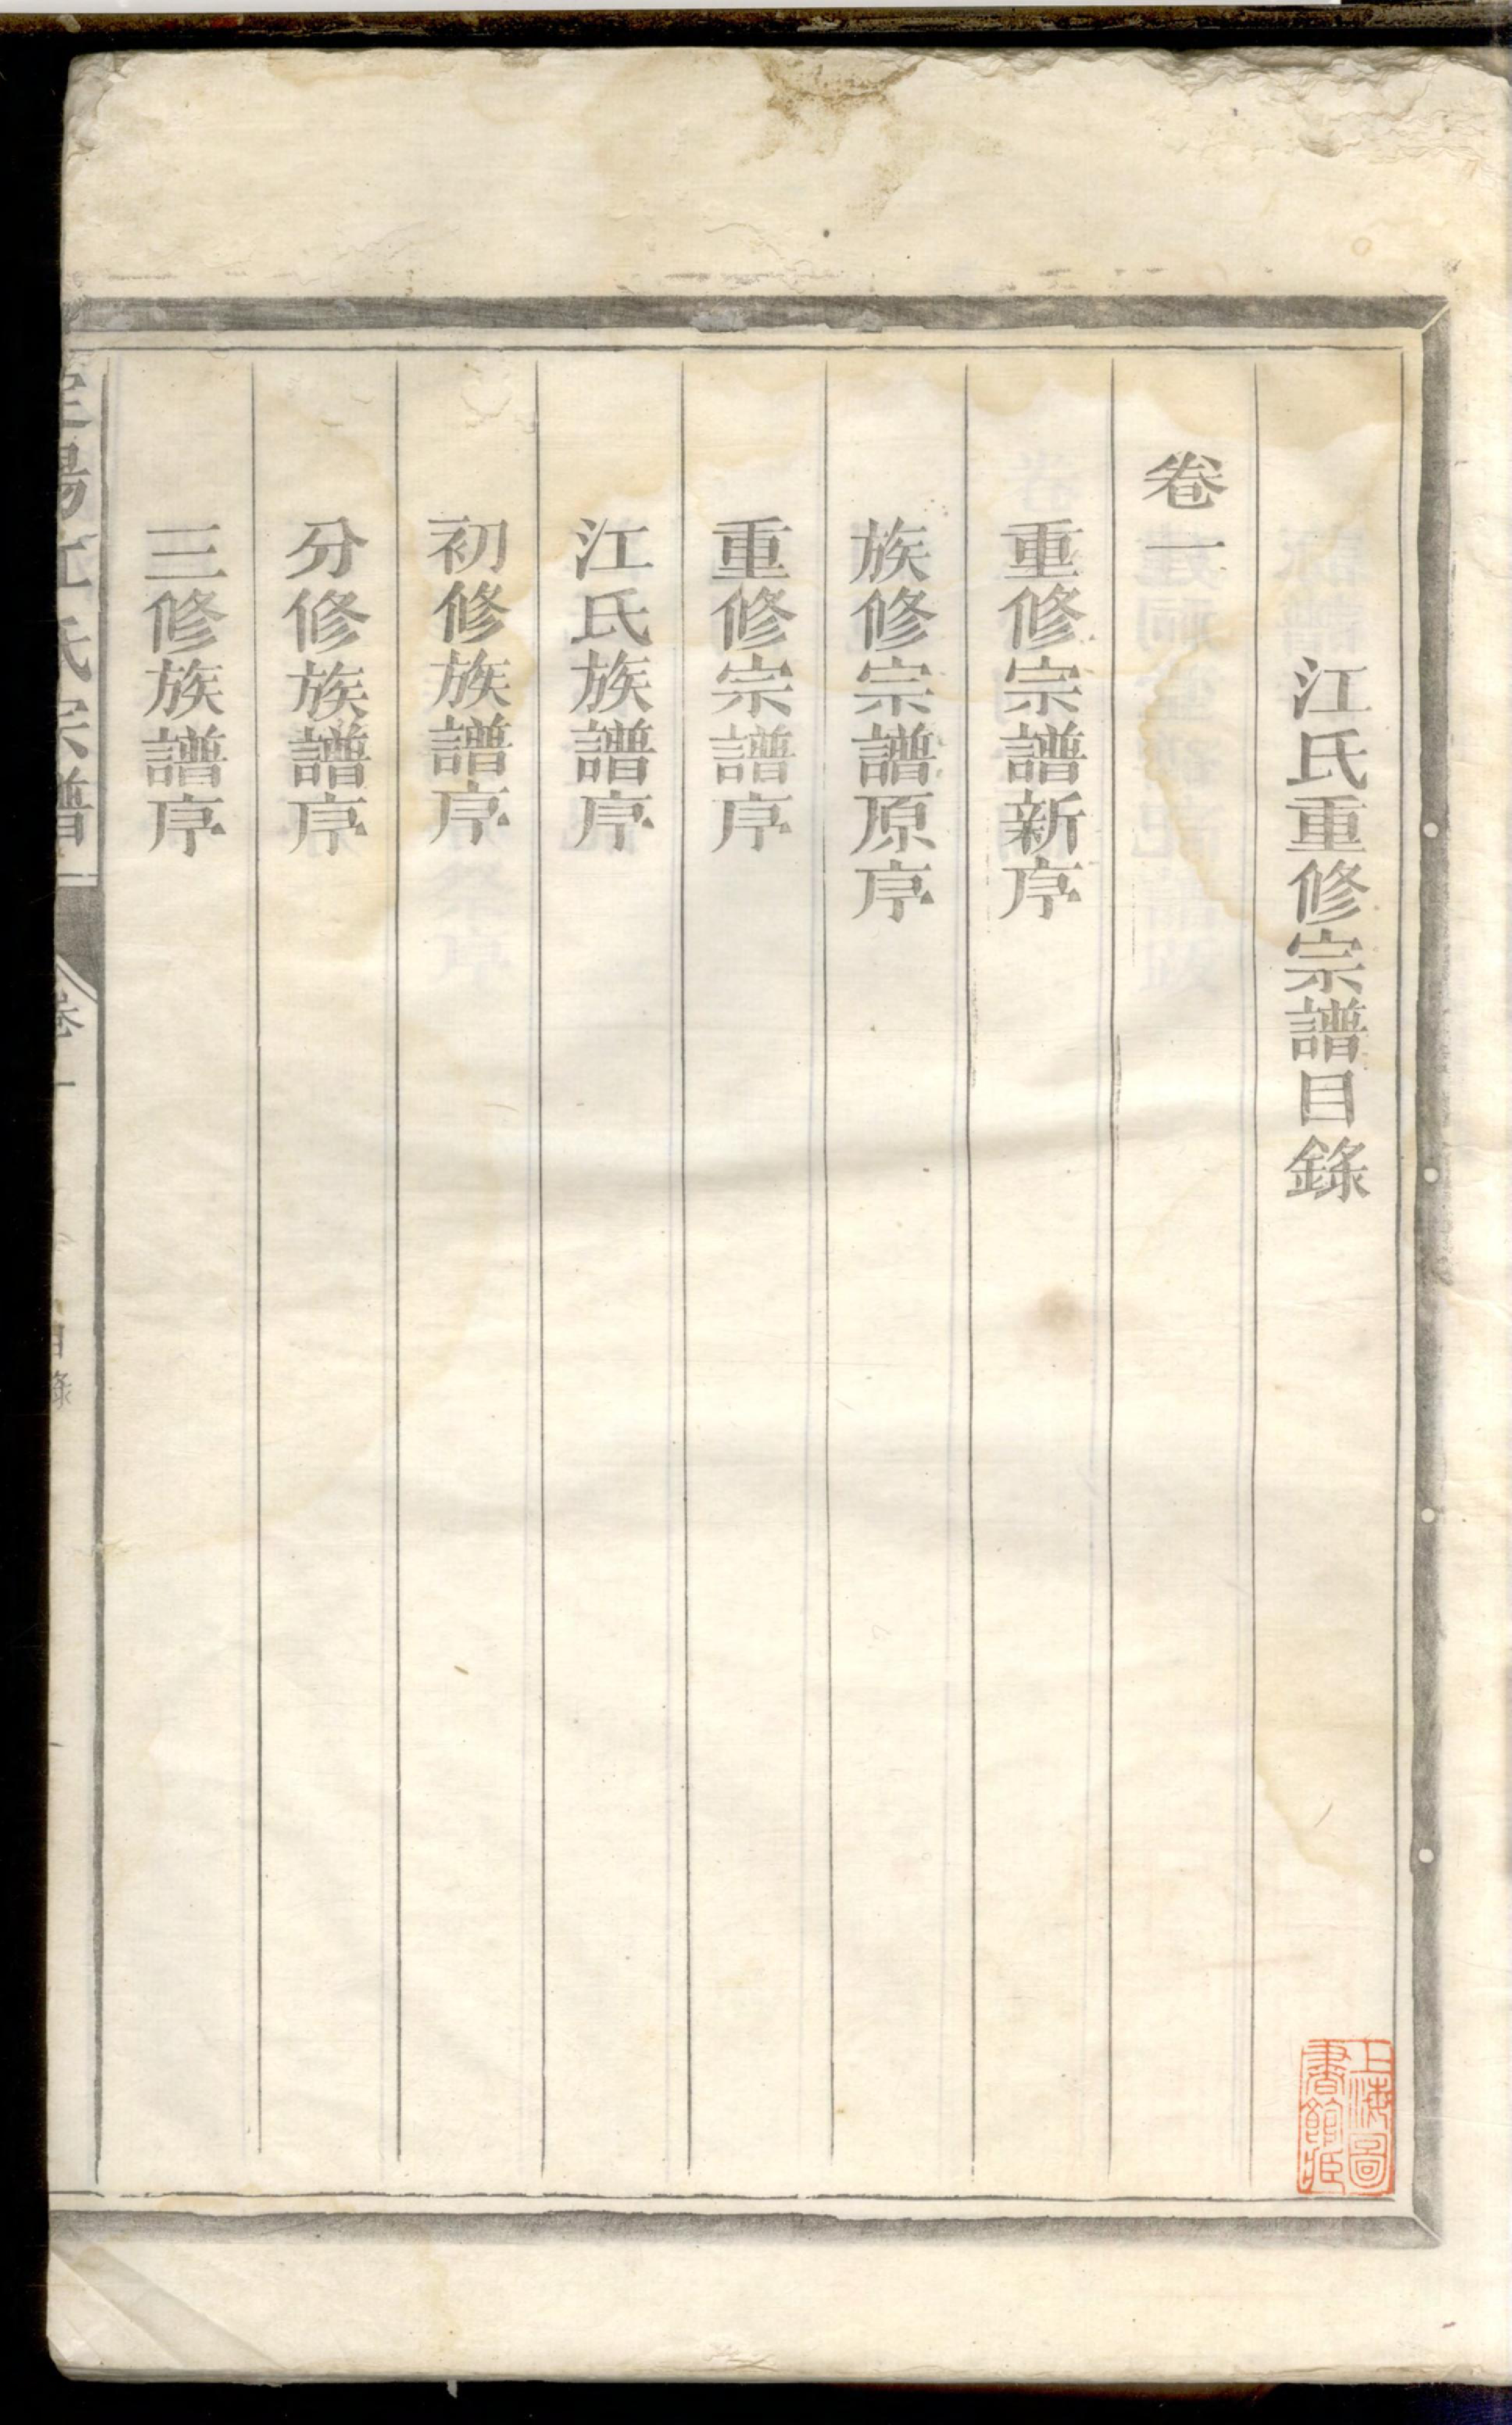 江氏重修宗譜目錄
卷一
重修宗譜新序
族修宗譜原序
重修宗譜序
江氏族譜序
初修族譜序
分修族譜序
三修族譜序
陽江氏宗譜
卷一
目錄
上海圖
書館藏